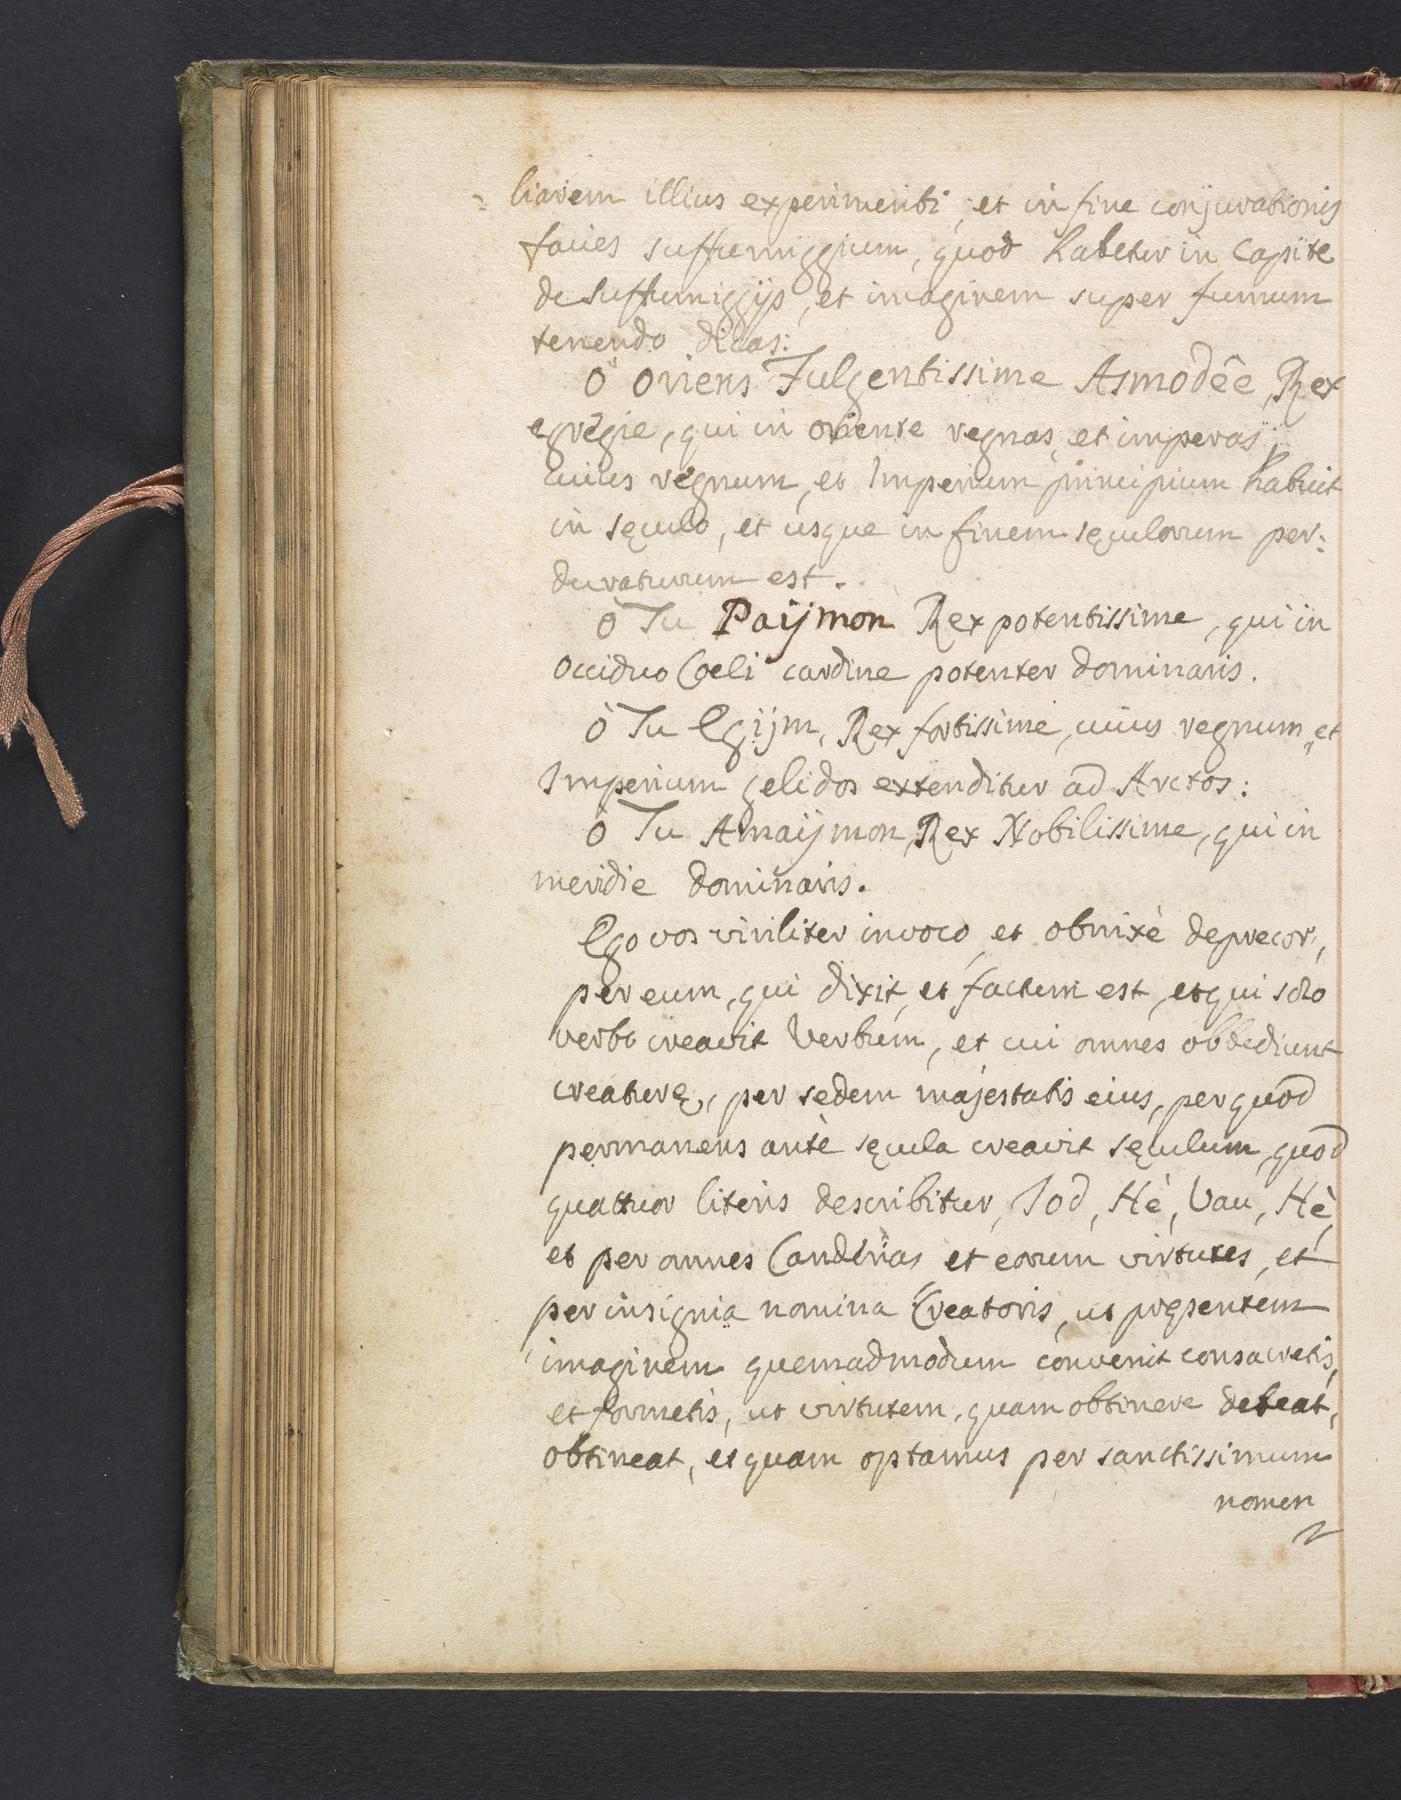 = liarem illius experimenti, et in fine conjurationis
facies suffumiggium, quod habetur in Capite
de suffumiggijs, et imaginem super fumum
tenendo dicas:
Ô Oriens Fulgentissime Asmodêe, Rex
egregie, qui in oriente regnas, et imperas,
cuius regnum, et Imperium principium habuit
in sęculo, et usque in finem sęculorum per:
duraturum est.
ò Tu Paijmon Rex potentissime, qui in
occiduo Coeli cardine potenter dominaris.
ò Tu Egijm, Rex fortissime, cuius regnum, et
Imperium gelidos extenditur ad Arctos:
ò Tu Amaijmon, Rex Nobilissime, qui in
meridie dominaris.
Ego vos viriliter invoco, et obnixè deprecor,
per eum, qui dixit, et factum est, et qui solo
verbo creavit Verbum, et cui omnes obbediunt
creaturę, per sedem majestatis eius, per quod
permanens antè sęcula creavit sęculum, quod
quattuor literis describitur, Iod, Hè, Vau, Hè,
et per omnes Candarias et eorum virtutes, et
per insignia nomina Creatoris, ut pręsentem
imaginem quemadmodum convenit consacretis,
et formetis, ut virtutem, quam obtinere debeat,
obtineat, et quam optamus per sanctissimum
nomen